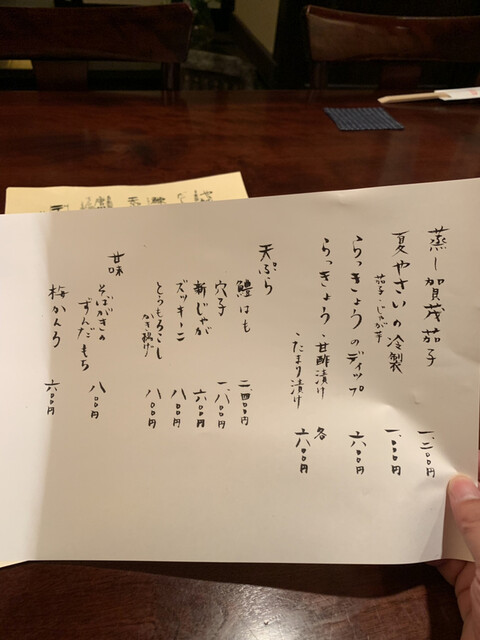 蒸し加茂茄子 一、二〇〇円
夏やさいの冷製 一、〇〇〇円
茄子・じゃが芋
らっきょうのディップ 六〇〇円
らっきょう・甘酢漬け 各
・たまり漬け 六〇〇円
天ぷら
鱧はも 二、四〇〇円
穴子 一、八〇〇円
新じゃが 六〇〇円
ズッキーニ 八〇〇円
とうもろこし
かき揚げ 八〇〇円
甘味
そばがきの
ずんだもち 八〇〇円
梅かんろ 六〇〇円